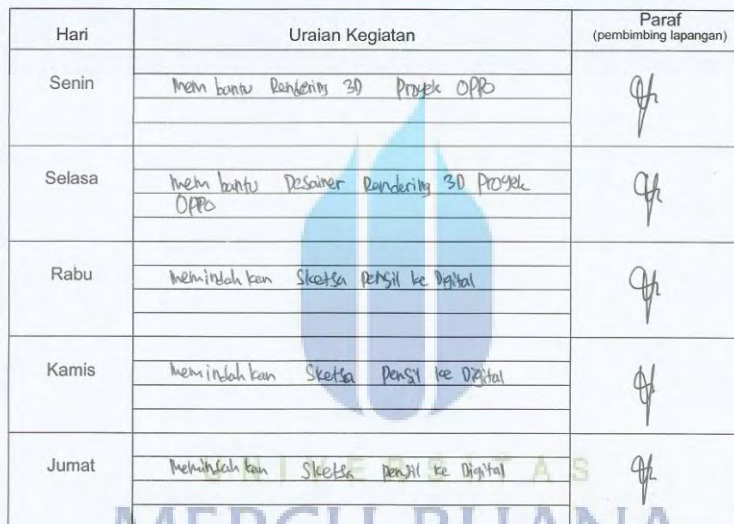 Hari Uraian Kegiatan Paraf
(pembimbing lapangan)
Senin Membantu Rendering 3D Proyek OPPO
Selasa membantu Desainer Rendering 3D Proyek
OPPO
Rabu memindahkan Sketsa Pensil ke Digital
Kamis memindahkan Sketsa Pensil ke Digital
Jumat Memindahkan Sketsa Pensil ke Digital
UNIVERSITAS
MERCU BUANA